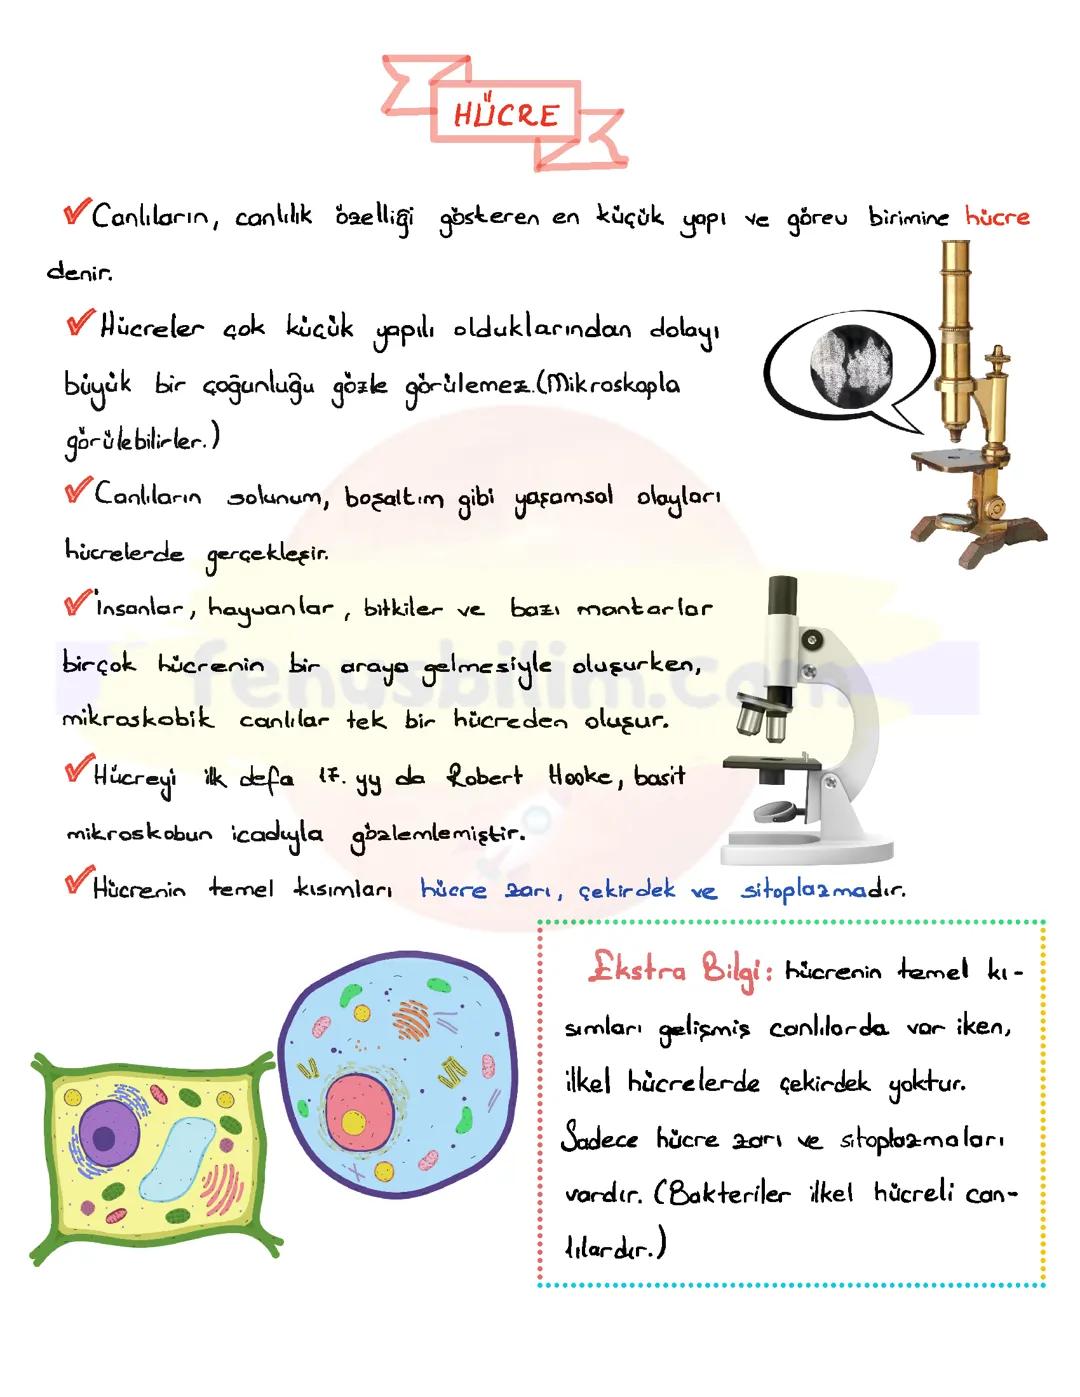 HÜCRE
Canlıların, canlılık özelliği gösteren en küçük yapı ve görev birimine hücre
denir.
Hücreler çok küçük yapılı olduklarından dolayı
büyük bir çoğunluğu gözle görülemez.(Mikroskopla
görülebilirler.)
Canlıların solunum, boşaltım gibi yaşamsal olayları
hücrelerde gerçekleşir.
İnsanlar, hayvanlar, bitkiler ve bazı mantarlar
birçok hücrenin bir araya gelmesiyle oluşurken,
fenusbilim.com
mikroskobik canlılar tek bir hücreden oluşur.
Hücreyi ilk defa 17. yy da Robert Hooke, basit
mikroskobun icadıyla gözlemlemiştir.
Hücrenin temel kısımları hücre zarı, çekirdek ve sitoplazmadır.
Ekstra Bilgi: hücrenin temel kı-
sımları gelişmiş canlılarda var iken,
ilkel hücrelerde çekirdek yoktur.
Sadece hücre zarı ve sitoplazmaları
vardır. (Bakteriler ilkel hücreli can-
lılardır.)